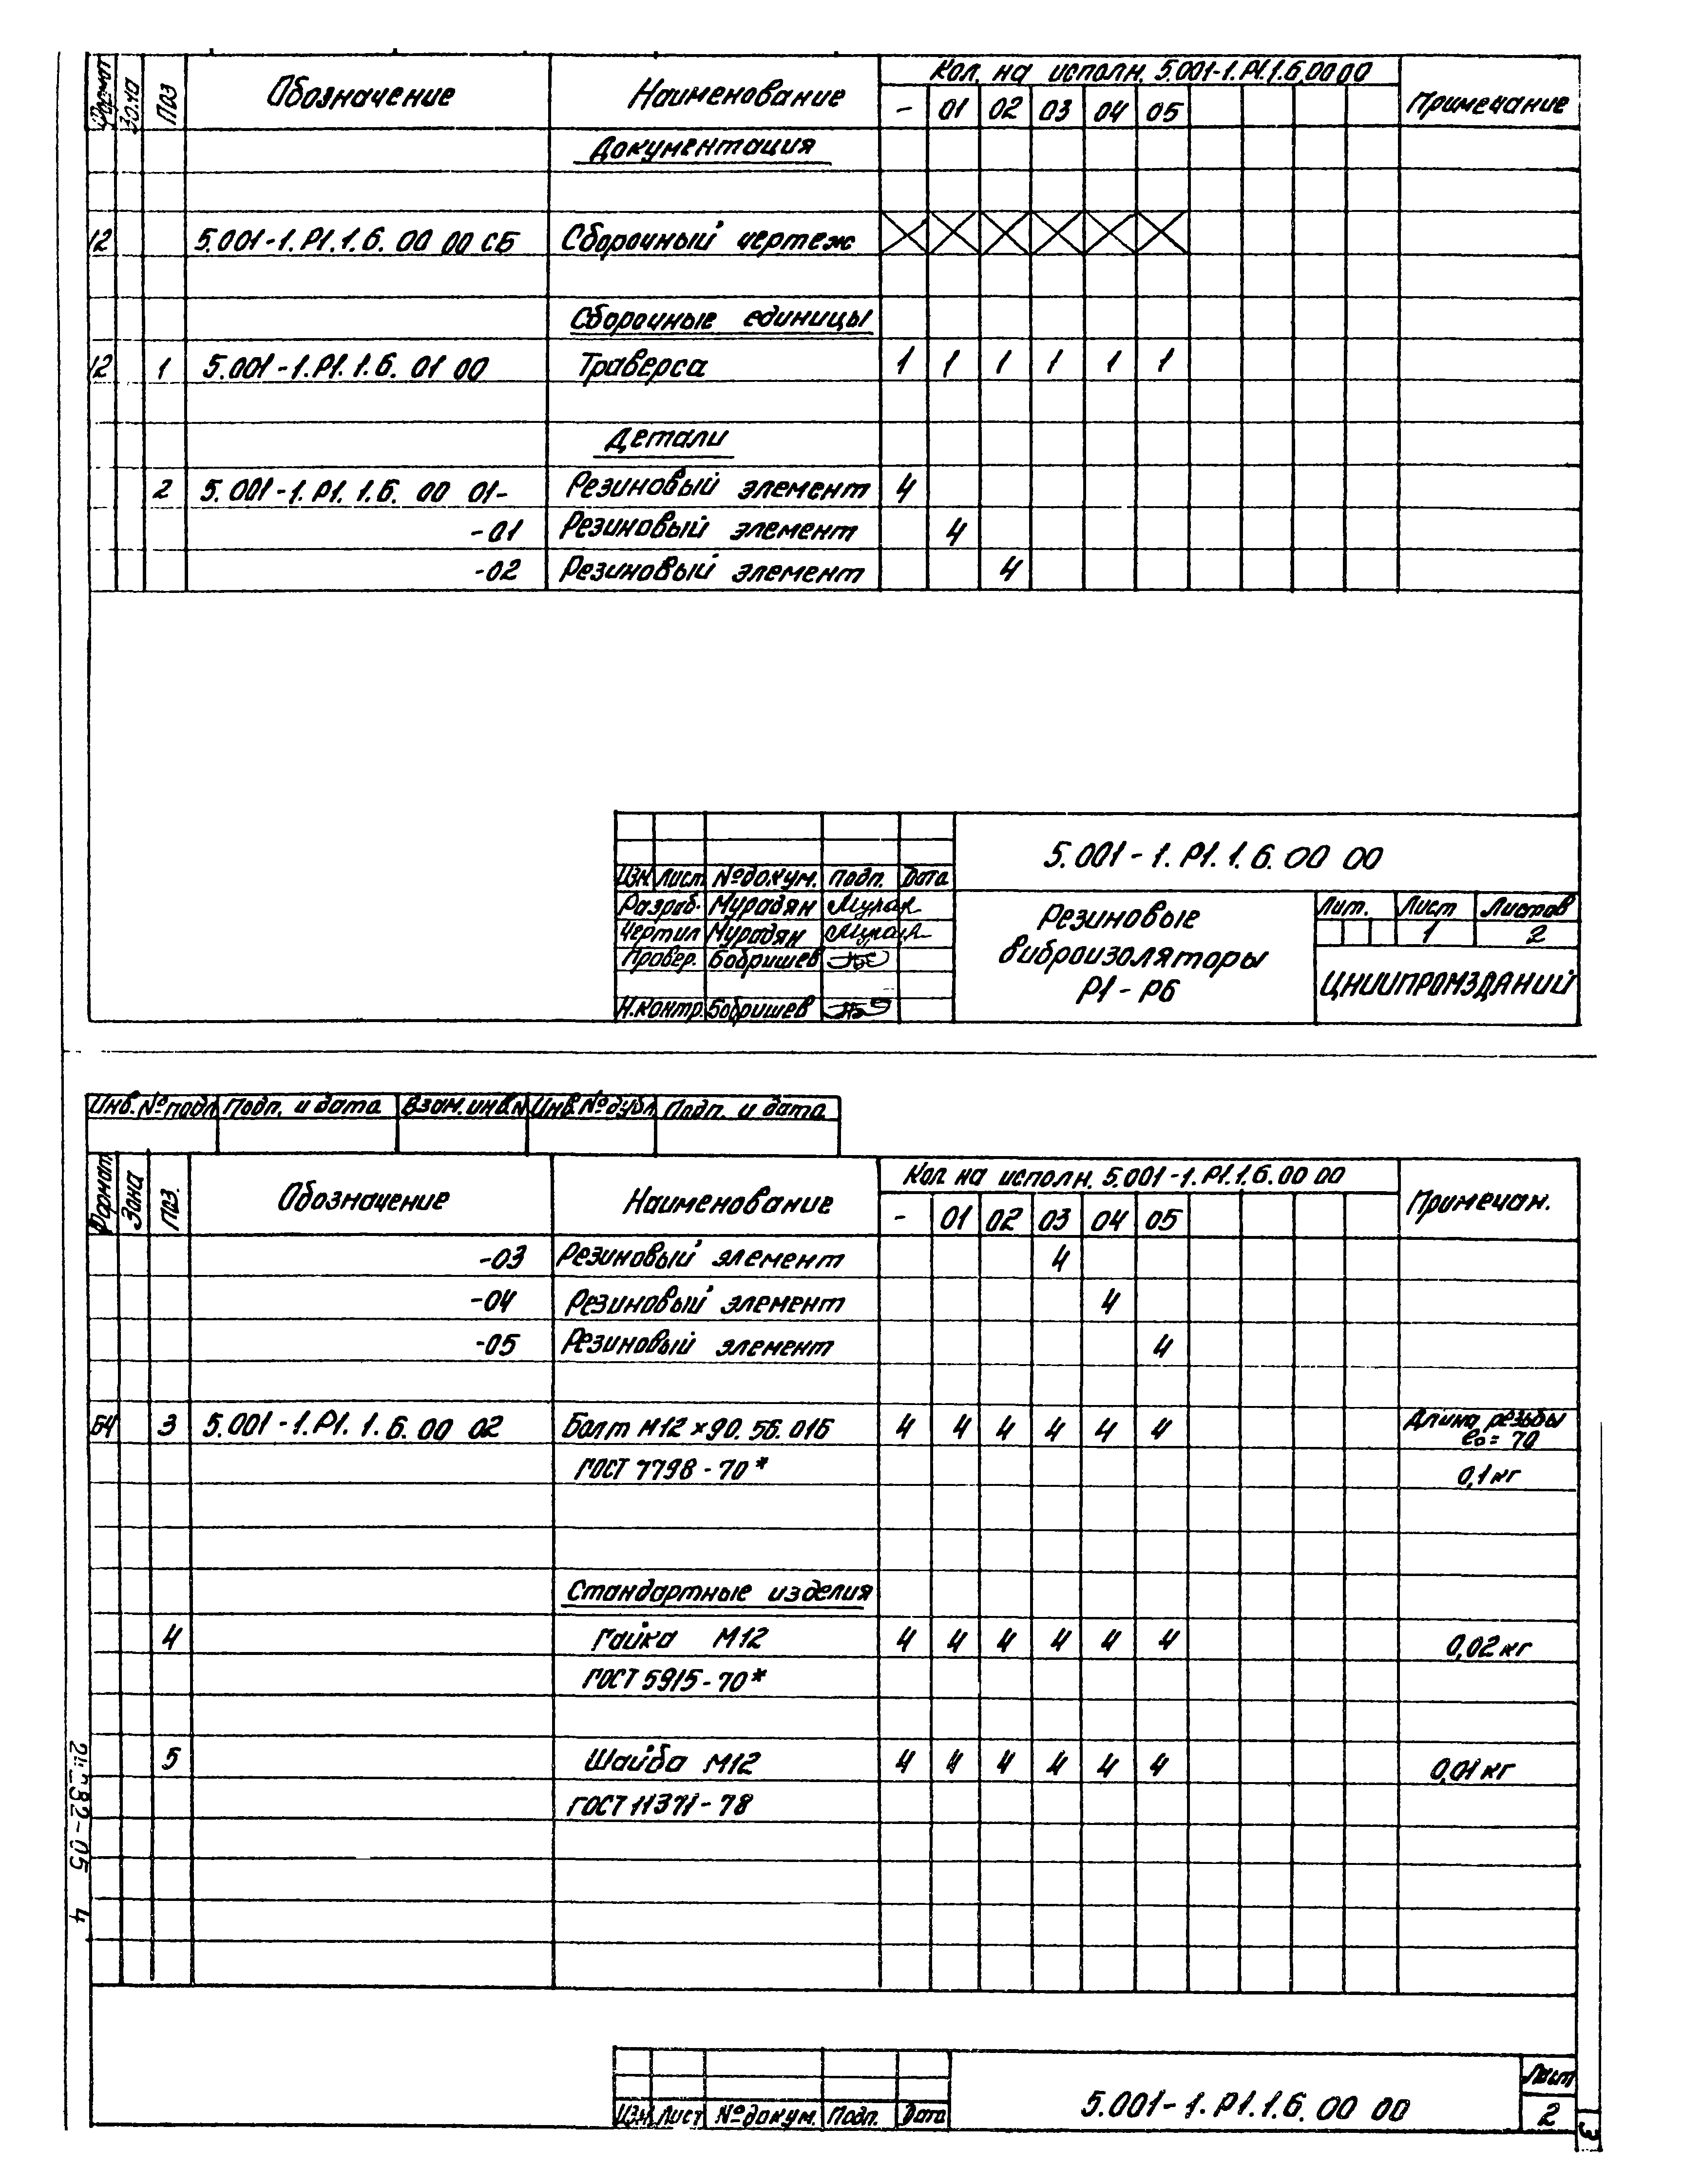 Формат Зона Поз Обозначение Наименование Кол. на исполн. 5.001-1.Р1.1.6.00 00 Примечание
- 01 02 03 04 05
Документация
12 5.001-1.Р1.1.6.00 00 СБ Сборочный чертеж
Сборочные единицы
12 1 5.001-1.Р1.1.6.01 00 Траверса 1 1 1 1 1 1
Детали
2 5.001-1.Р1.1.6.00 01- Резиновый элемент 4
-01 Резиновый элемент 4
-02 Резиновый элемент 4
5.001-1.Р1.1.6.00 00
Изм Лист № докум. Подп. Дата
Разраб. Мурадян
Чертил Мурадян
Провер. Бобришев
Н.контр. Бобришев
Резиновые
виброизоляторы
Р1-Р6
Лит. Лист Листов
1 2
ЦНИИПРОМЗДАНИЙ
Инв.№ подл Подп. и дата Взам.инв.№ Инв.№ дубл Подп. и дата
Формат Зона Поз. Обозначение Наименование Кол на исполн. 5.001-1.Р1.1.6.00 00 Примечан.
- 01 02 03 04 05
-03 Резиновый элемент 4
-04 Резиновый элемент 4
-05 Резиновый элемент 4
БЧ 3 5.001-1.Р1.1.6.00 02 Болт М12×90.56.016 4 4 4 4 4 4 Длина резьбы
ℓo=70
ГОСТ 7798-70* 0,1 кг
Стандартные изделия
4 Гайка М12 4 4 4 4 4 4 0,02 кг
ГОСТ 5915-70*
5 Шайба М12 4 4 4 4 4 4 0,01 кг
ГОСТ 11371-78
4
Изм Лист № докум. Подп. Дата
5.001-1.Р1.1.6.00 00
Лист
2
3